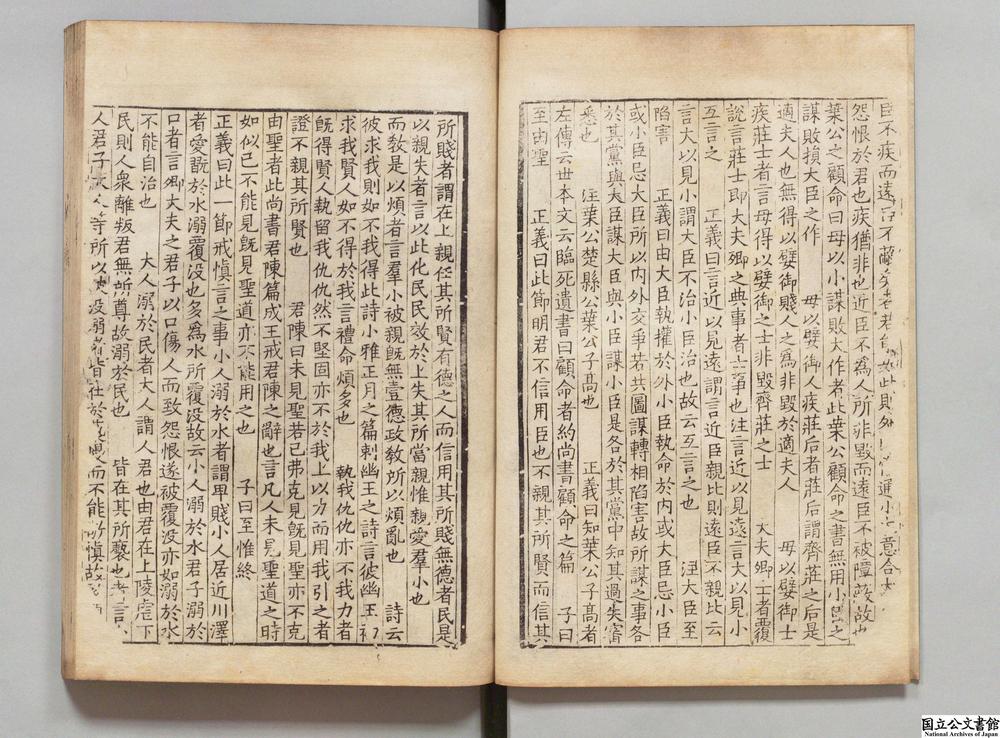 臣不疾而遠臣不蔽矣者若能如此則外
怨恨於君也疾猶非也近臣不爲人所非毀而遠臣不被障蔽故也
葉公之顧命曰毋以小謀敗大作者此葉公顧命之書無用小臣之
謀敗損大臣之作　毋以嬖御人疾莊后者莊后謂齊莊之后是
適夫人也無得以嬖御賤人之爲非毀於適夫人　毋以嬖御士
疾莊士者言毋得以嬖御之士非毀齊莊之士　大夫卿士者覆
說言莊士即大夫卿之典事者士事也注言近以見遠言大以見小
互言之　正義曰言近以見遠謂言近臣親比則遠臣不親比云
言大以見小謂大臣不治小臣治也故云互言之也　注大臣至
陷害　正義曰由大臣執權於外小臣執命於内或大臣忌小臣
或小臣忌大臣所以内外交爭若共圖謀轉相陷害故所謀之事各
於其黨與大臣謀大臣與小臣謀小臣是各於其黨中知其過失審
悉也　注葉公楚縣公葉公子高也　正義曰知葉公子高者
左傳云世本文云臨死遺書曰顧命者約尚書顧命之篇　子曰
至由聖　正義曰此節明君不信用臣也不親其所賢而信其
所賤者謂在上親任其所賢有德之人而信用其所賤無德者民是
以親失者言以此化民民效於上失其所當親惟親愛羣小也
而教是以煩者言羣小被親既無壹德政教所以煩亂也　詩云
彼求我則如不我得此詩小雅正月之篇刺幽王之詩言彼幽王初
求我賢人如不得於我言禮命煩多也　執我仇仇亦不我力者
旣得賢人執留我仇仇然不堅固亦不於我上以力而用我引之者
證不親其所賢也　君陳曰未見聖若己弗克見旣見聖亦不克
由聖者此尚書君陳篇成王戒君陳之辭也言凡人未見聖道之時
如似已不能見旣見聖道亦不能用之也　子曰至惟終
正義曰此一節戒愼言之事小人溺於水者謂卑賤小人居近川澤
者愛翫於水溺覆没也多爲水所覆没故云小人溺於水君子溺於
口者言卿大夫之君子以口傷人而致怨恨遂被覆没亦如溺於水
不能自治也　大人溺於民者大人謂人君也由君在上陵虐下
民則人衆離叛君無所尊故溺於民也　皆在其所褻也者言
人君子大人等所以覆没溺者皆在於褻慢而不能所愼故
国立公文書館
National Archives of Japan